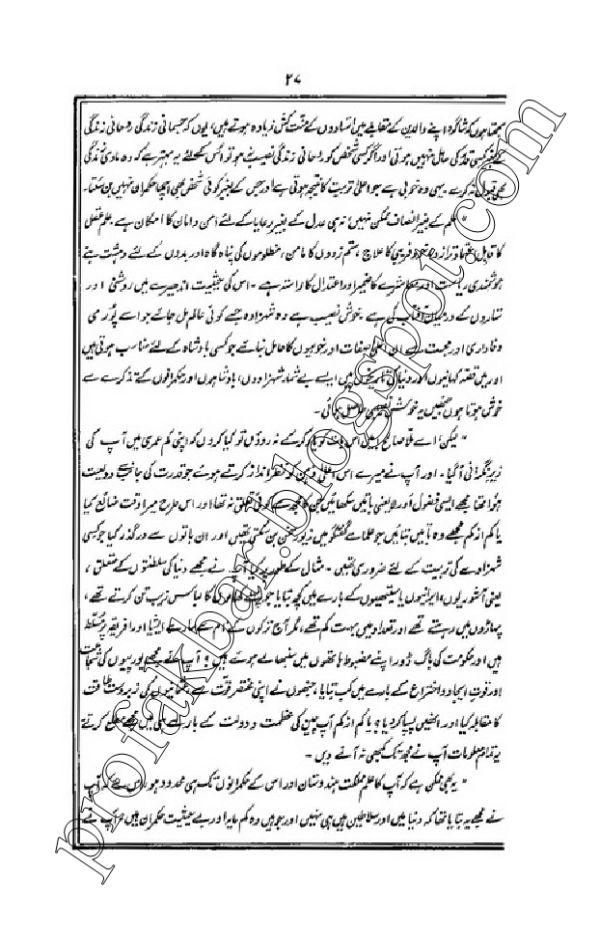 ۲۷
سمجھتا ہوں کہ شاگرد اپنے والدین کے مقابلے میں استادوں کے منت کش زیادہ ہوتے ہیں، یوں کہ جسمانی زندگی روحانی زندگی
کے بغیر کسی قدر کی حامل نہیں ہوتی اور اگر کسی شخص کو روحانی زندگی نصیب نہ ہو تو اس کے لئے یہ بہتر ہے کہ وہ مادی زندگی
بھی قبول نہ کرے۔ یہی وہ خوبی ہے جو اعلیٰ تربیت کا نتیجہ ہوتی ہے اور جس کے بغیر کوئی شخص بھی اچھا حکمران نہیں بن سکتا۔
" علم کے بغیر انصاف ممکن نہیں، نہ ہی عدل کے بغیر رعایا کے لئے امن و امان کا امکان ہے۔ علم عقل
کا قدیل کا علاج، ستم زدوں کا مامن، مظلوموں کی پناہ گاہ اور بدوں کے لئے وحشت ہے
خوشنمدی ریاست اور معاشرے کا ضمیر اور اعتدال کا راستہ ہے۔ اس کی حیثیت اندھیرے میں روشنی اور
ستاروں کے درمیان آفتاب کی ہے۔ خوش نصیب ہے وہ شہزادہ جسے کوئی عالم مل جائے جو اسے پوری
وفاداری اور محبت سے ان اعلیٰ صفات اور خوبیوں کا حامل بنا سکے جو کسی بادشاہ کے لئے مناسب ہوتی ہیں
اور میں قصہ کہانیوں اور دنیا کی تاریخوں میں ایسے بے شمار شہزادوں، بادشاہوں اور حکمرانوں کے تذکرے سے
خوش ہوتا ہوں جنھیں یہ خوش نصیبی حاصل ہوئی۔
" لیکن اے ملا صالح میں اس بات کو یاد کر کے نہ روؤں تو کیا کروں کہ اپنی کم عمری میں آپ کی
زیر نگرانی آ گیا۔ اور آپ نے میرے اس اعلیٰ ذہن کو نظر انداز کرتے ہوئے جو قدرت کی جانب سے ودیعت
ہوا تھا مجھے ایسی فضول اور لایعنی باتیں سکھائیں جن کا مجھ سے کوئی تعلق نہ تھا اور اس طرح میرا وقت ضائع کیا
یا کم از کم مجھے وہ باتیں بتائیں جو علماء سے گفتگو میں زیور سخن بن سکتی تھیں اور ان باتوں سے درگذر کیا جو کسی
شہزادے کی تربیت کے لئے ضروری تھیں۔ مثال کے طور پر کیا آپ نے مجھے دنیا کی سلطنتوں کے متعلق،
یعنی آشوریوں، ایرانیوں یا سیتھیوں کے بارے میں کچھ بتایا جو کھالوں کا لباس زیب تن کرتے تھے،
پہاڑوں میں رہتے تھے اور تعداد میں بہت کم تھے، مگر آج ترکوں کے نام سے سارے ایشیا اور افریقہ پر مسلط
ہیں اور حکومت کی باگ ڈور اپنے مضبوط ہاتھوں میں سنبھالے ہوئے ہیں؟ آپ نے مجھے یورپیوں کی شجاعت
اور قوت ایجاد و اختراع کے بارے میں کب بتایا، جنھوں نے اپنی مختصر قوت سے عثمانیوں کی زبردست طاقت
کا مقابلہ کیا اور انھیں پسپا کر دیا؟ یا کم از کم آپ چین کی عظمت و دولت کے بارے ہی میں مجھے مطلع کرتے
یہ تمام معلومات آپ نے مجھ تک کبھی نہ آنے دیں۔
" یہ بھی ممکن ہے کہ آپ کا علم مملکت ہندوستان اور اس کے حکمرانوں تک ہی محدود ہو، اس لئے کہ آپ
نے مجھے یہ بتایا تھا کہ دنیا میں اور سلاطین ہیں ہی نہیں اور جو ہیں وہ کم مایہ اور بے حیثیت حکمران ہیں مگر آپ نے
profakbar.blogspot.com